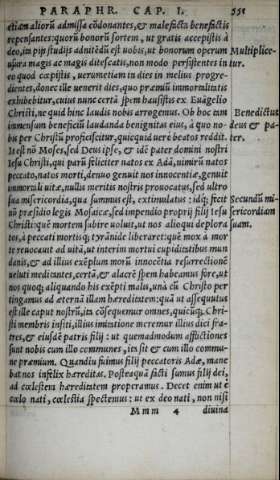 PARAPHR. CAP. I. 551
etiam aliorũ admissa cõdonantes, & malefacta benefactis
repensantes: quorũ bonorũ sortem, ut gratis accepistis à
deo, ita pijs studijs adnitēdũ est uobis, ut bonorum operum Multiplice-
usura magis ac magis ditescatis, non modo persistentes in tur.
eo quod cœpistis, uerumetiam in dies in melius progre-
dientes, donec ille uenerit dies, quo præmiũ immortalitatis
exhibebitur, cuius nunc certã spem hausistis ex Euãgelio
Christi, ne quid hinc laudis nobis arrogemus. Ob hoc tam Benedictus
immensum beneficiũ laudanda benignitas eius, à quo no- deus & pa-
bis per Christũ proficiscitur, quicquid uere beatos reddit. ter.
Is est nõ Moses, sed Deus ipse, & idē pater domini nostri
Iesu Christi, qui parũ feliciter natos ex Adã, nimirũ natos
peccato, natos morti, denuo genuit nos innocentiæ, genuit
immortali uitæ, nullis meritis nostris prouocatus, sed ultro
sua misericordia, qua summus est, extimulatus: idq; fecit Secundũ mi
nõ præsidio legis Mosaicæ, sed impendio proprij filij Iesu sericordiam
Christi: quē mortem subire uoluit, ut nos alioqui deplora suam.
tos, à peccati mortisq; tyrãnide liberaret: quē mox à mor
te reuocauit ad uitã, ut interim mortui cupiditatibus mun
danis, & ad illius exēplum morũ innocētia resurrectionē
ueluti medicantes, certã, & alacrē spem habeamus fore, ut
nos quoq; aliquando his exēpti malis, unà cũ Christo per
tingamus ad æternã illam hæreditatem: quã ut assequutus
est ille caput nostrũ, ita cõsequemur omnes, quicũq; Chri-
sti membris insiti, illius imitatione meremur illius dici fra-
tres, & eiusdē patris filij: ut quemadmodum afflictiones
sunt nobis cum illo communes, ita sit & cum illo commu-
ne præmium. Quamdiu fuimus filij peccatoris Adæ, mane
bat nos infelix hæreditas. Posteaquã facti sumus filij dei,
ad cœlestem hæreditatem properamus. Decet enim ut è
cœlo nati, cœlestia spectemus: ut ex deo nati, non nisi
Mmm 4 diuina